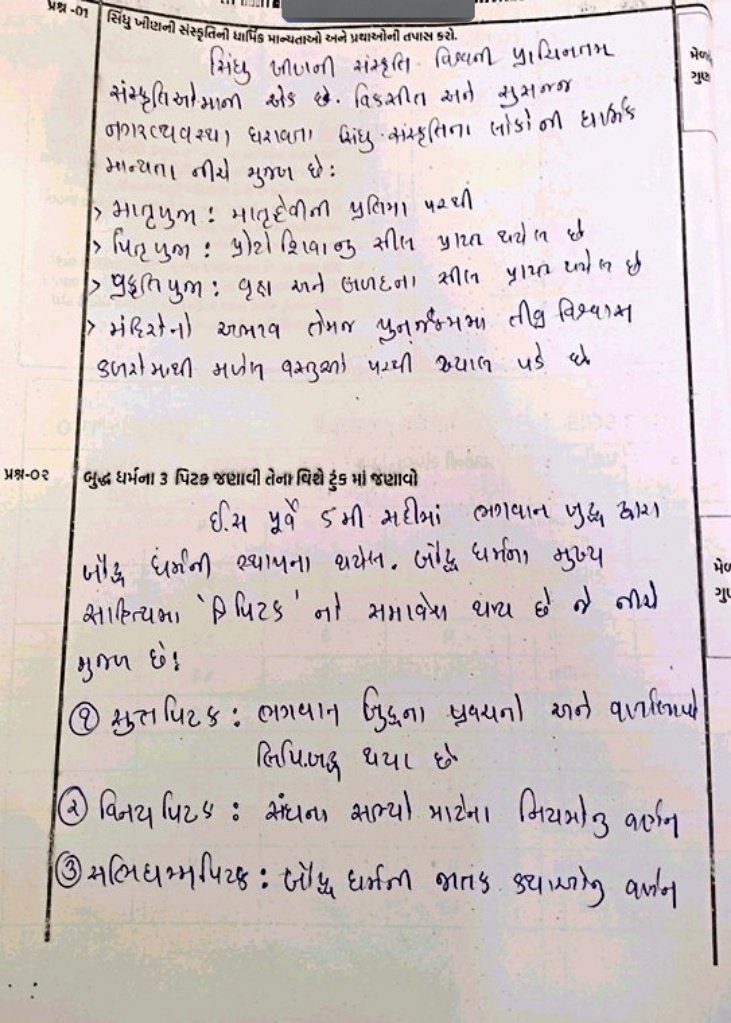 પ્રશ્ન -01 સિંધુ ખીણની સંસ્કૃતિની ધાર્મિક માન્યતાઓ અને પ્રથાઓની તપાસ કરો.
સિંધુ ખીણની સંસ્કૃતિ વિશ્વની પ્રાચિનતમ
સંસ્કૃતિઓમાની એક છે. વિકસીત અને સુસજ્જ
નગરવ્યવસ્થા ધરાવતા સિંધુ સંસ્કૃતિના લોકોની ધાર્મિક
માન્યતા નીચે મુજબ છે:
> માતૃપુજા : માતૃદેવીની પ્રતિમા પરથી
> પિતૃપુજા : પ્રોટો શિવાનુ સીલ પ્રાપ્ત થયેલ છે
> પ્રકૃતિપુજા : વૃક્ષ અને બળદના સીલ પ્રાપ્ત થયેલ છે
> મંદિરોનો અભાવ તેમજ પુનર્જન્મમાં તીવ્ર વિશ્વાસ
કબરોમાથી મળેલ વસ્તુઓ પરથી ખ્યાલ પડે છે
મેળ
ગુણ
પ્રશ્ન-૦૨ બુદ્ધ ધર્મના 3 પિટક જણાવી તેના વિશે ટુંક માં જણાવો
ઈ.સ પૂર્વે 5મી સદીમાં ભગવાન બુદ્ધ દ્વારા
બૌદ્ધ ધર્મની સ્થાપના થયેલ. બૌદ્ધ ધર્મના મુખ્ય
સાહિત્યમા 'ત્રિપિટક' નો સમાવેશ થાય છે જે નીચે
મુજબ છે:
મેળ
ગુણ
① સુત્તપિટક : ભગવાન બુદ્ધના પ્રવચનો અને વાર્તાલાપો
લિપિબદ્ધ થયા છે
② વિનયપિટક : સંઘના સભ્યો માટેના નિયમોનુ વર્ણન
③ અભિધમ્મપિટક : બૌદ્ધ ધર્મની જાતક કથાઓનુ વર્ણન